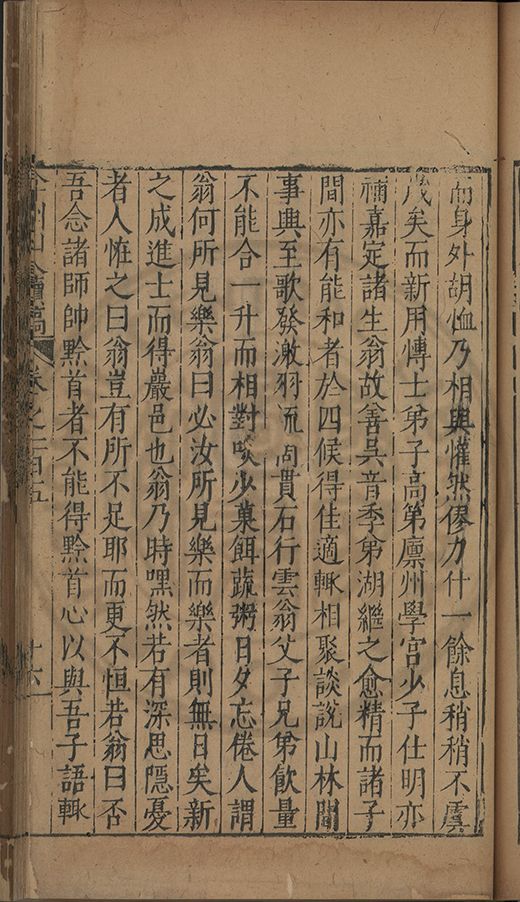 而身外胡恤乃相與懽然僇力什一餘息稍稍不虞
歲矣而新用愽士弟子高第廩州學宫少子仕明亦
補嘉定諸生翁故善吳音季弟湖繼之愈精而諸子
間亦有能和者於四候得佳適輙相聚談說山林間
事興至歌發激羽流商貫石行雲翁父子兄弟飲量
不能合一升而相對啖少菓餌蔬粥日夕忘倦人謂
翁何所見樂翁曰必汝所見樂而樂者則無日矣新
之成進士而得巖邑也翁乃時嘿然若有深思隱憂
者人恠之曰翁豈有所不足耶而更不恒若翁曰否
吾念諸師帥黔首者不能得黔首心以與吾子語輙
弇州山人續稿 卷之一百五 十六